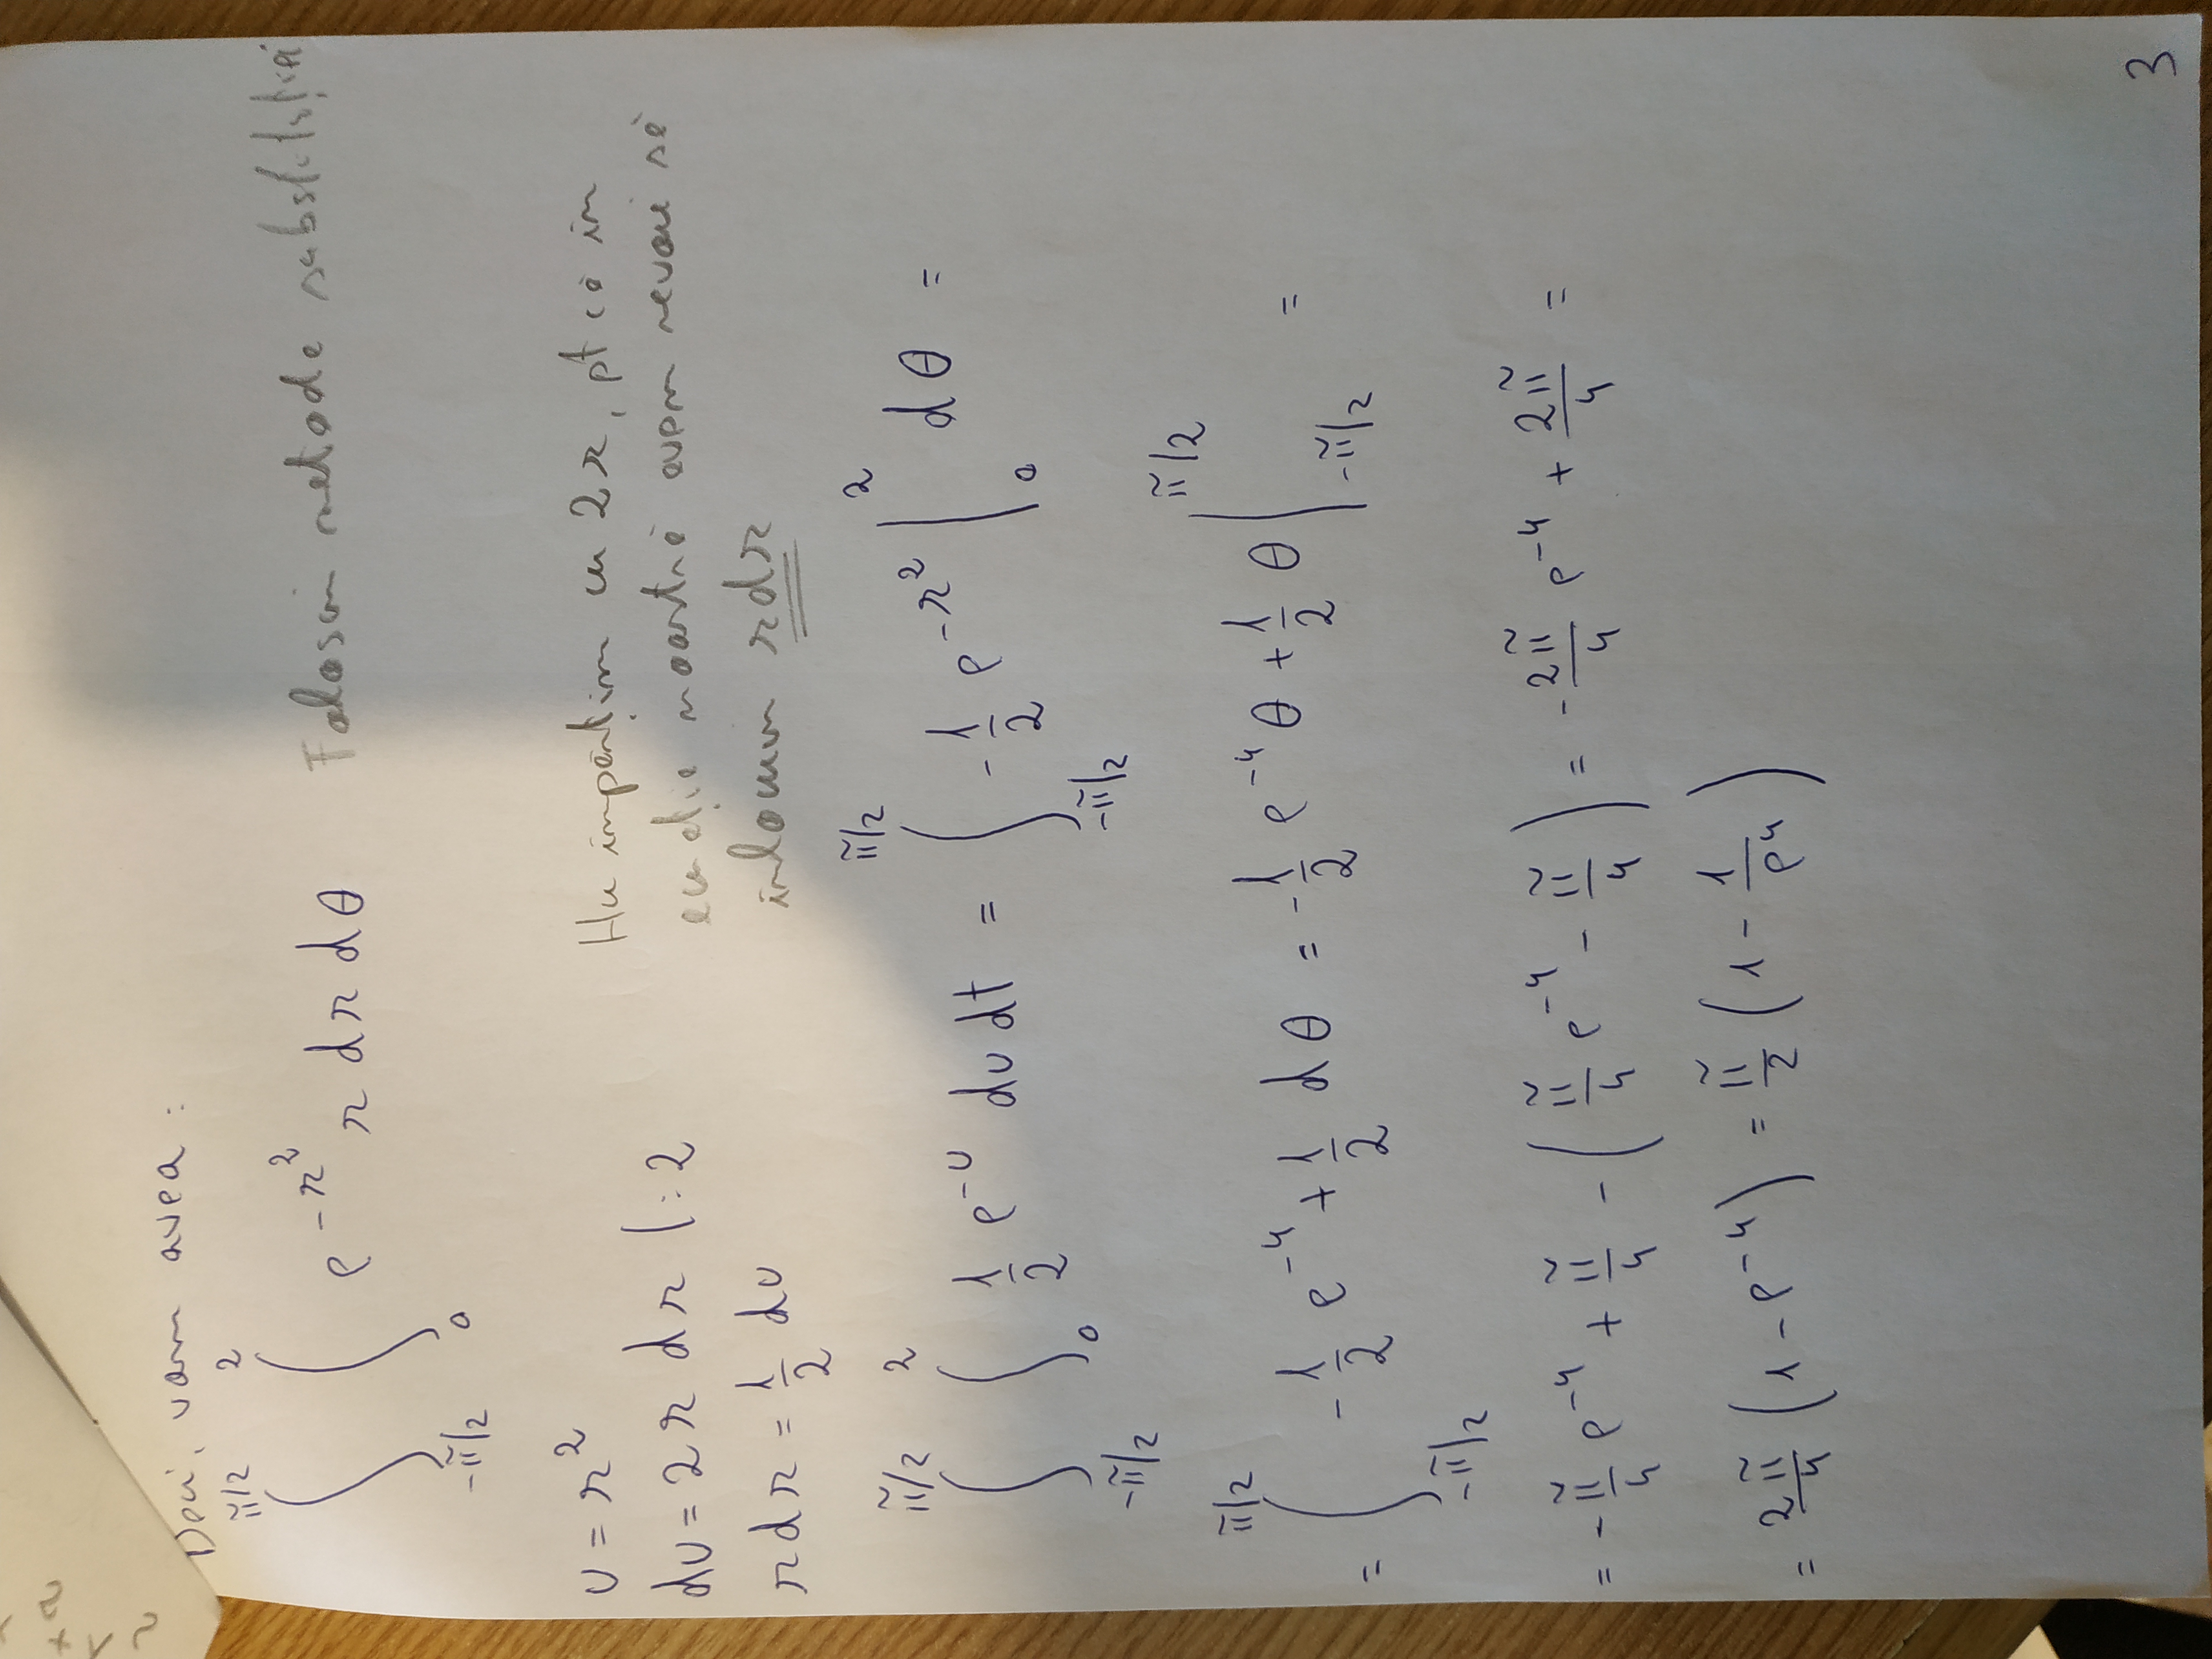 Deci, vom avea :
∫_{-π/2}^{π/2} ∫_0^2 e^{-r^2} r dr dθ Folosim metoda substituției
u = r^2
du = 2r dr |:2
r dr = 1/2 du
Nu împărțim cu 2r, pt că în
ecuația noastră avem nevoie să
înlocuim rdr
∫_{-π/2}^{π/2} ∫_0^2 1/2 e^{-u} du dt = ∫_{-π/2}^{π/2} -1/2 e^{-r^2} |_0^2 dθ =
= ∫_{-π/2}^{π/2} -1/2 e^{-4} + 1/2 dθ = -1/2 e^{-4} θ + 1/2 θ |_{-π/2}^{π/2} =
= -π/4 e^{-4} + π/4 - (π/4 e^{-4} - π/4) = -2π/4 e^{-4} + 2π/4 =
= 2π/4 (1 - e^{-4}) = π/2 (1 - 1/e^4)
3